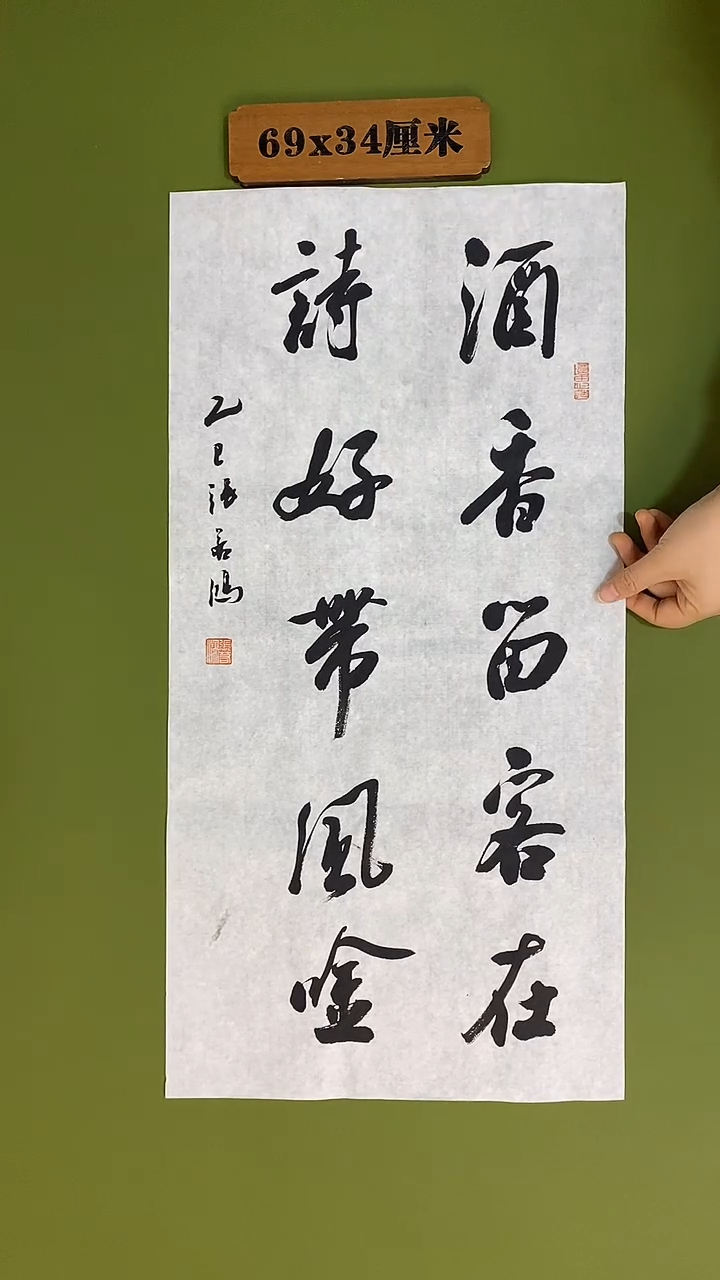 69x34厘米
酒香留客在
詩好帶風唫
乙巳張若鴻